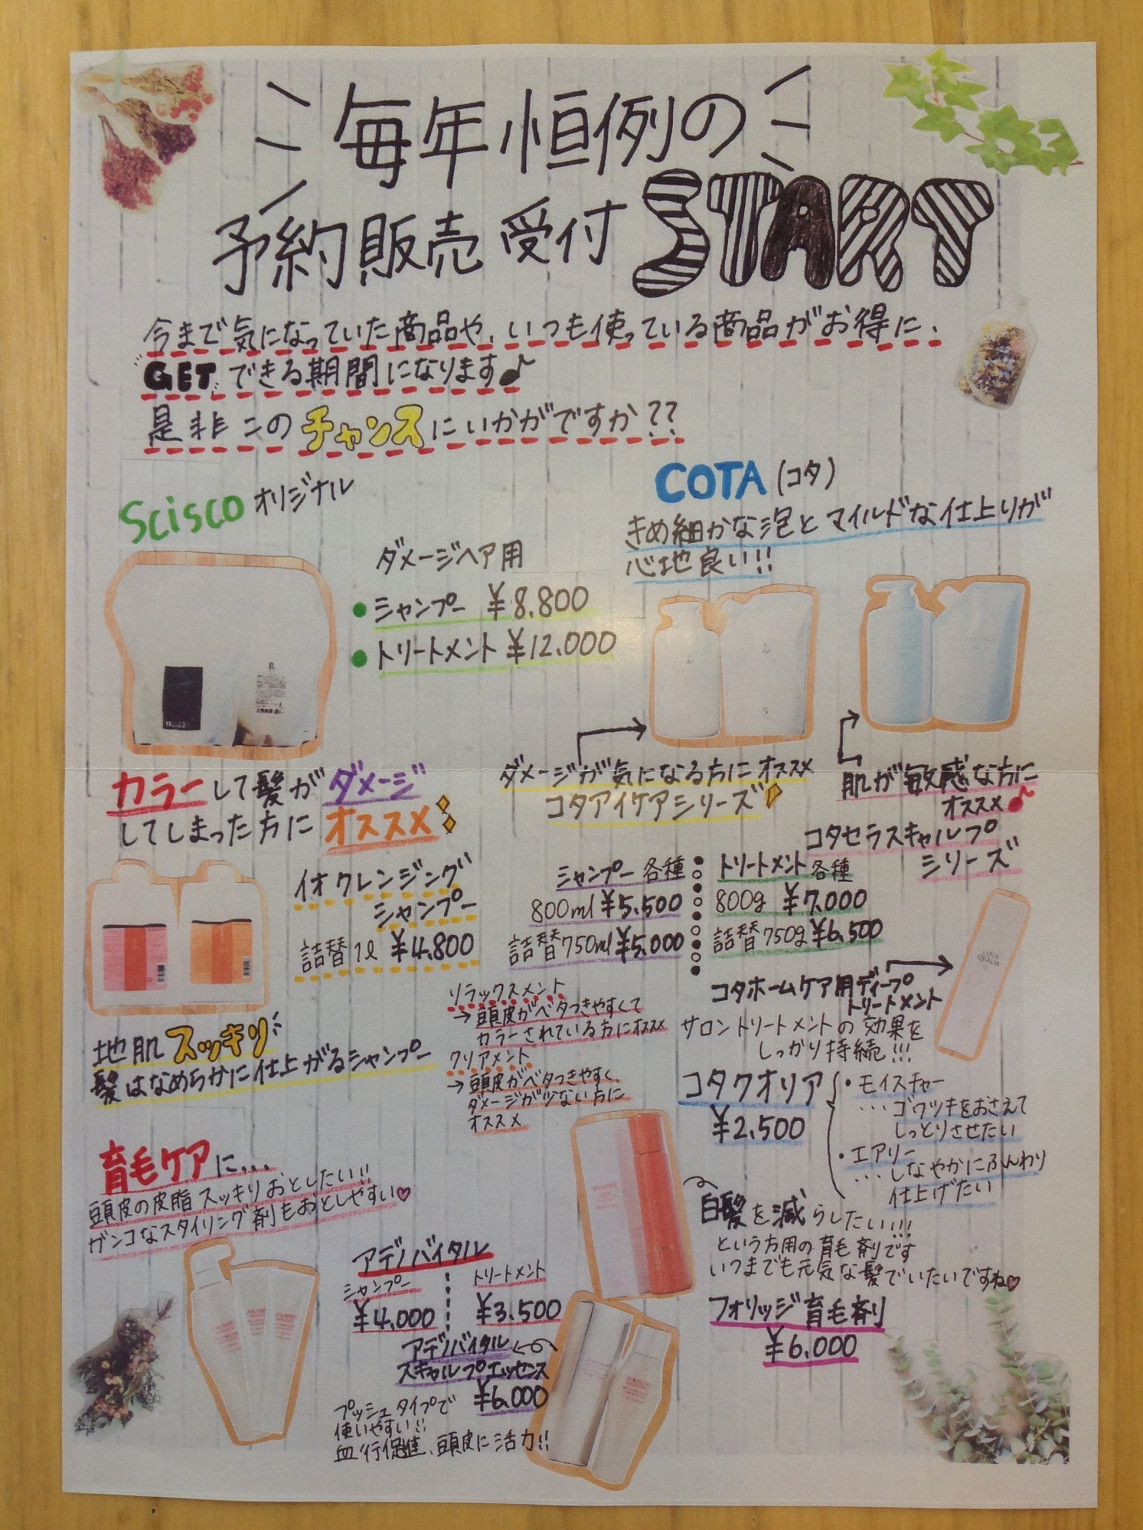 毎年恒例の
予約販売受付START
今まで気になっていた商品や、いつも使っている商品がお得に、
"GET"できる期間になります♪
是非このチャンスにいかがですか??
Scisco オリジナル
ダメージヘア用
●シャンプー ¥8.800
●トリートメント ¥12.000
カラーして髪がダメージ
してしまった方にオススメ
COTA (コタ)
きめ細かな泡とマイルドな仕上りが
心地良い!!
ダメージが気になる方にオススメ
コタアイケアシリーズ
肌が敏感な方に
オススメ♪
コタセラスキャルプ
シリーズ
シャンプー 各種
800ml ¥5.500
詰替750ml ¥5.000
トリートメント各種
800g ¥7.000
詰替750g ¥6.500
イオクレンジング
シャンプー
詰替1ℓ ¥4.800
地肌スッキリ
髪はなめらかに仕上がるシャンプー
リラックスメント
→頭皮がベタつきやすくて
カラーされている方にオススメ
クリアメント
→頭皮がベタつきやすく、
ダメージが少ない方に
オススメ
コタホームケア用ディープ
トリートメント
サロントリートメントの効果を
しっかり持続!!!
コタクオリア
¥2,500
・モイスチャー
...ゴワツキをおさえて
しっとりさせたい
・エアリー
...しなやかにふんわり
仕上げたい
育毛ケアに...
頭皮の皮脂スッキリおとしたい!!
ガンコなスタイリング剤もおとしやすい♡
アデノバイタル
シャンプー
¥4.000
トリートメント
¥3.500
アデノバイタル
スキャルプエッセンス
¥6.000
プッシュタイプで
使いやすい!!
血行促進、頭皮に活力!!
白髪を減らしたい!!!
という方用の育毛剤です
いつまでも元気な髪でいたいですね♡
フォリッジ育毛剤
¥6.000